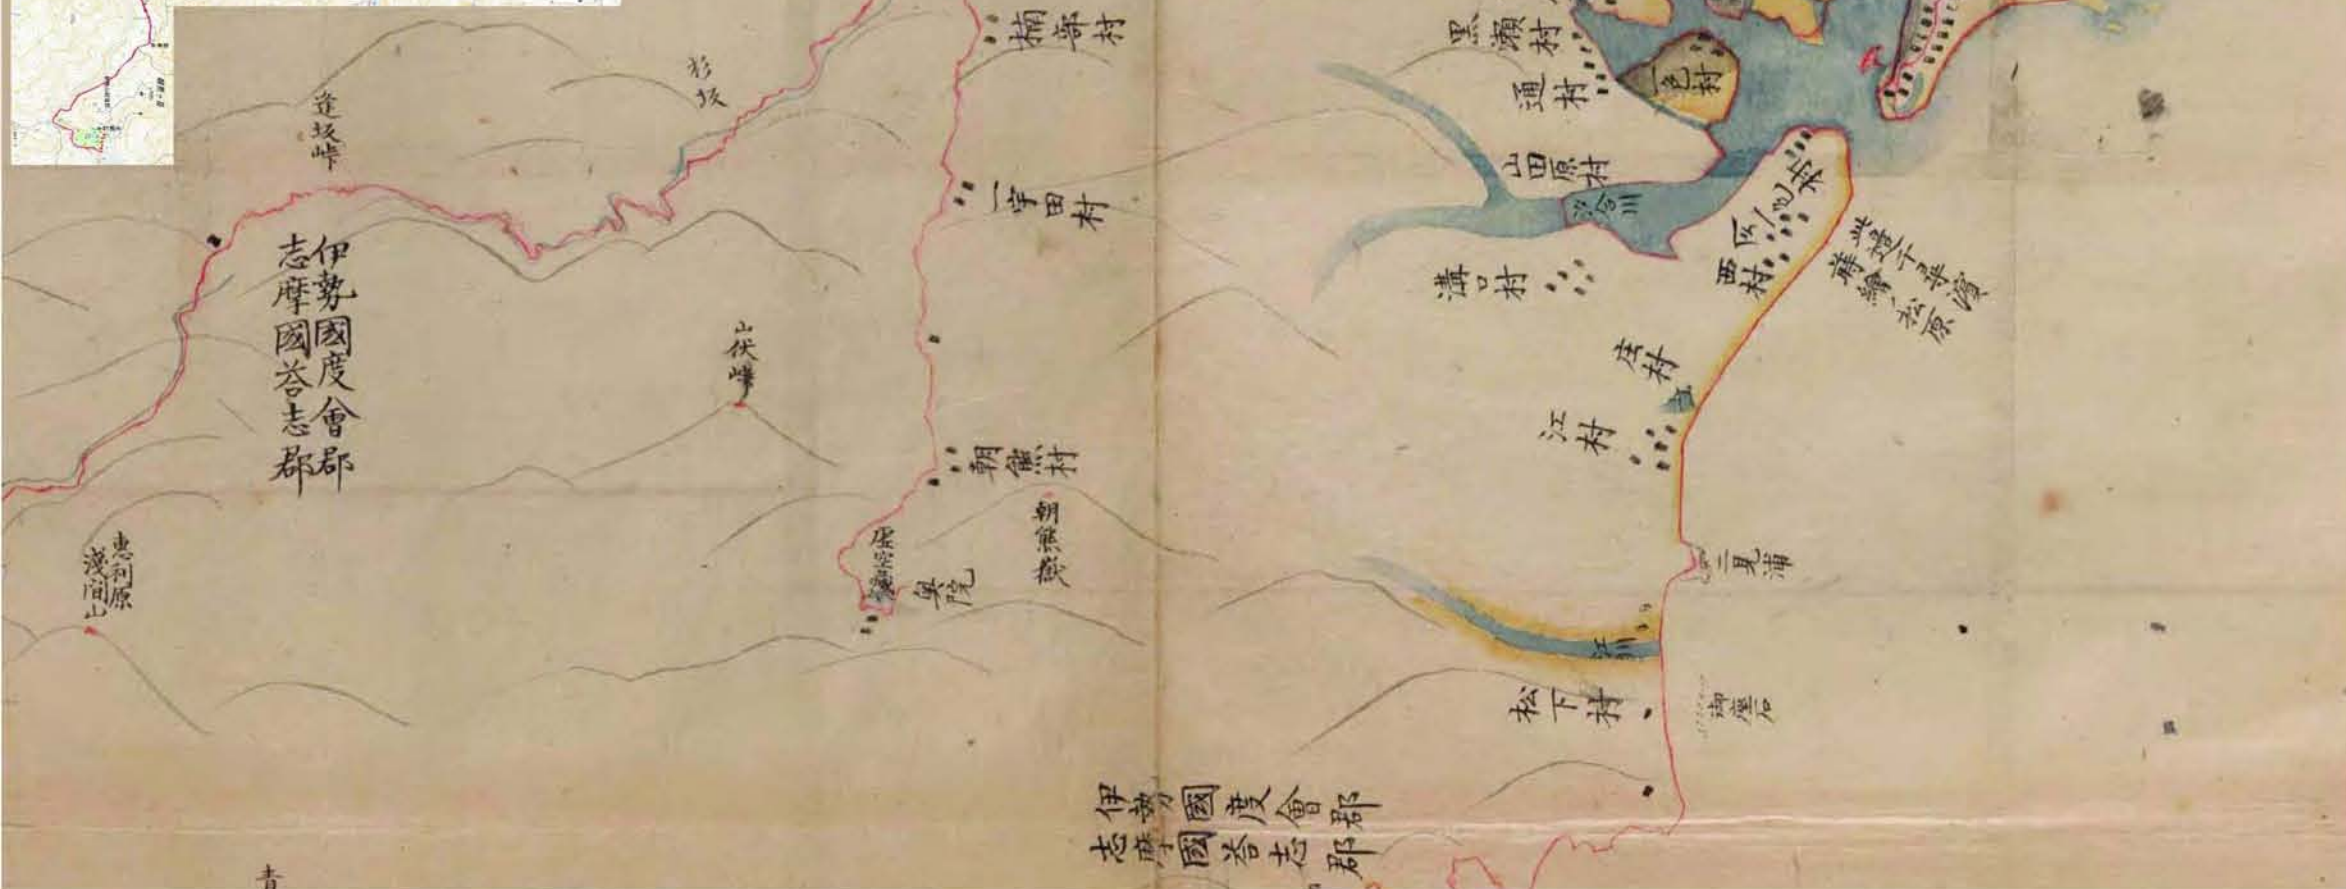 楠部村
杉坂
逢坂峠
一宇田村
伊勢國度會郡
志摩國荅志郡
山伏峠
朝熊村
朝熊嶽
虚空藏
奥院
恵利原
淺間山
黒瀬村
通村
一色村
山田原村
汐合川
溝口村
西村
庄村
江村
二見浦
江川
松下村
御座石
伊勢國度會郡
志摩國荅志郡
青